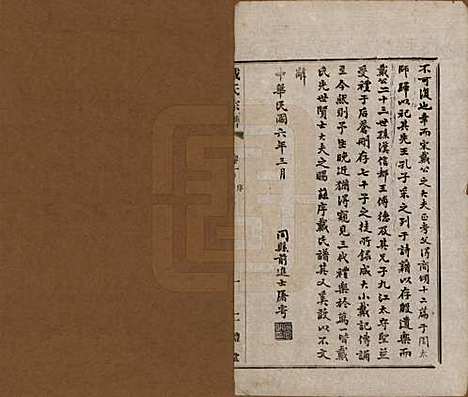 不可復也幸而宋戴公之大夫正考父得商頌十二篇于周太
師歸以祀其先王孔子采之列于詩籍以存殷遺樂而
戴公二十三世孫漢信都王傅德及其兄子九江太守聖並
受禮于后蒼刪存七十子之徒所錄成大小戴記傳誦
至今然則予生晚近猶得窺見三代禮樂於萬一皆戴
氏先世賢士大夫之賜茲序戴氏譜其又奚敢以不文
辭
中華民國六年三月
同縣前進士屠寄
戴氏宗譜
序